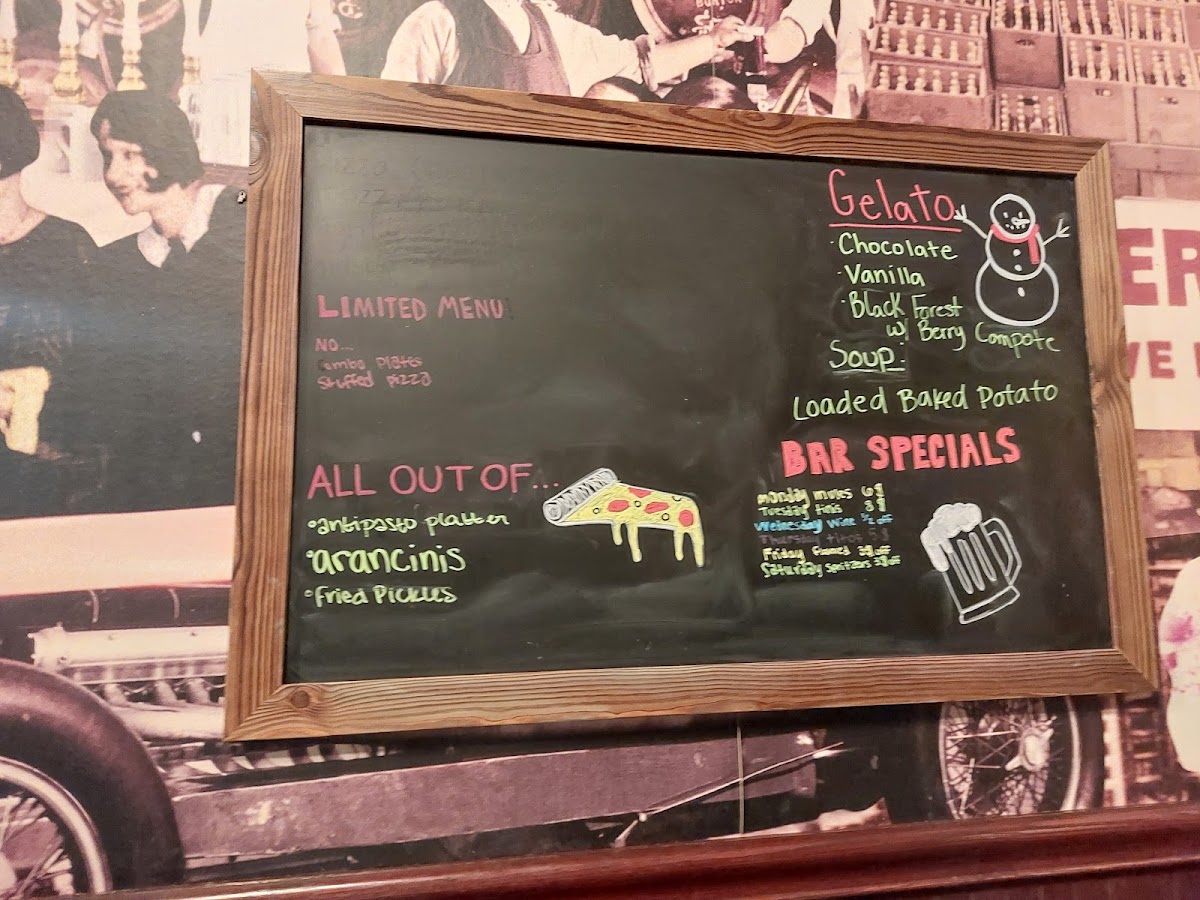 LIMITED MENU
NO...
Combo Plates
Stuffed pizza
ALL OUT OF...
•antipasto platter
•arancinis
•Fried Pickles
Gelato
·Chocolate
·Vanilla
·Black Forest
w/ Berry Compote
Soup:
Loaded Baked Potato
BAR SPECIALS
Monday mules 6$
Tuesday tinis 8$
Wednesday Wine 1/2 off
Thursday titos 5$
Friday Flamed 3$ off
Saturday Spritzers 3$ off
ER
VE